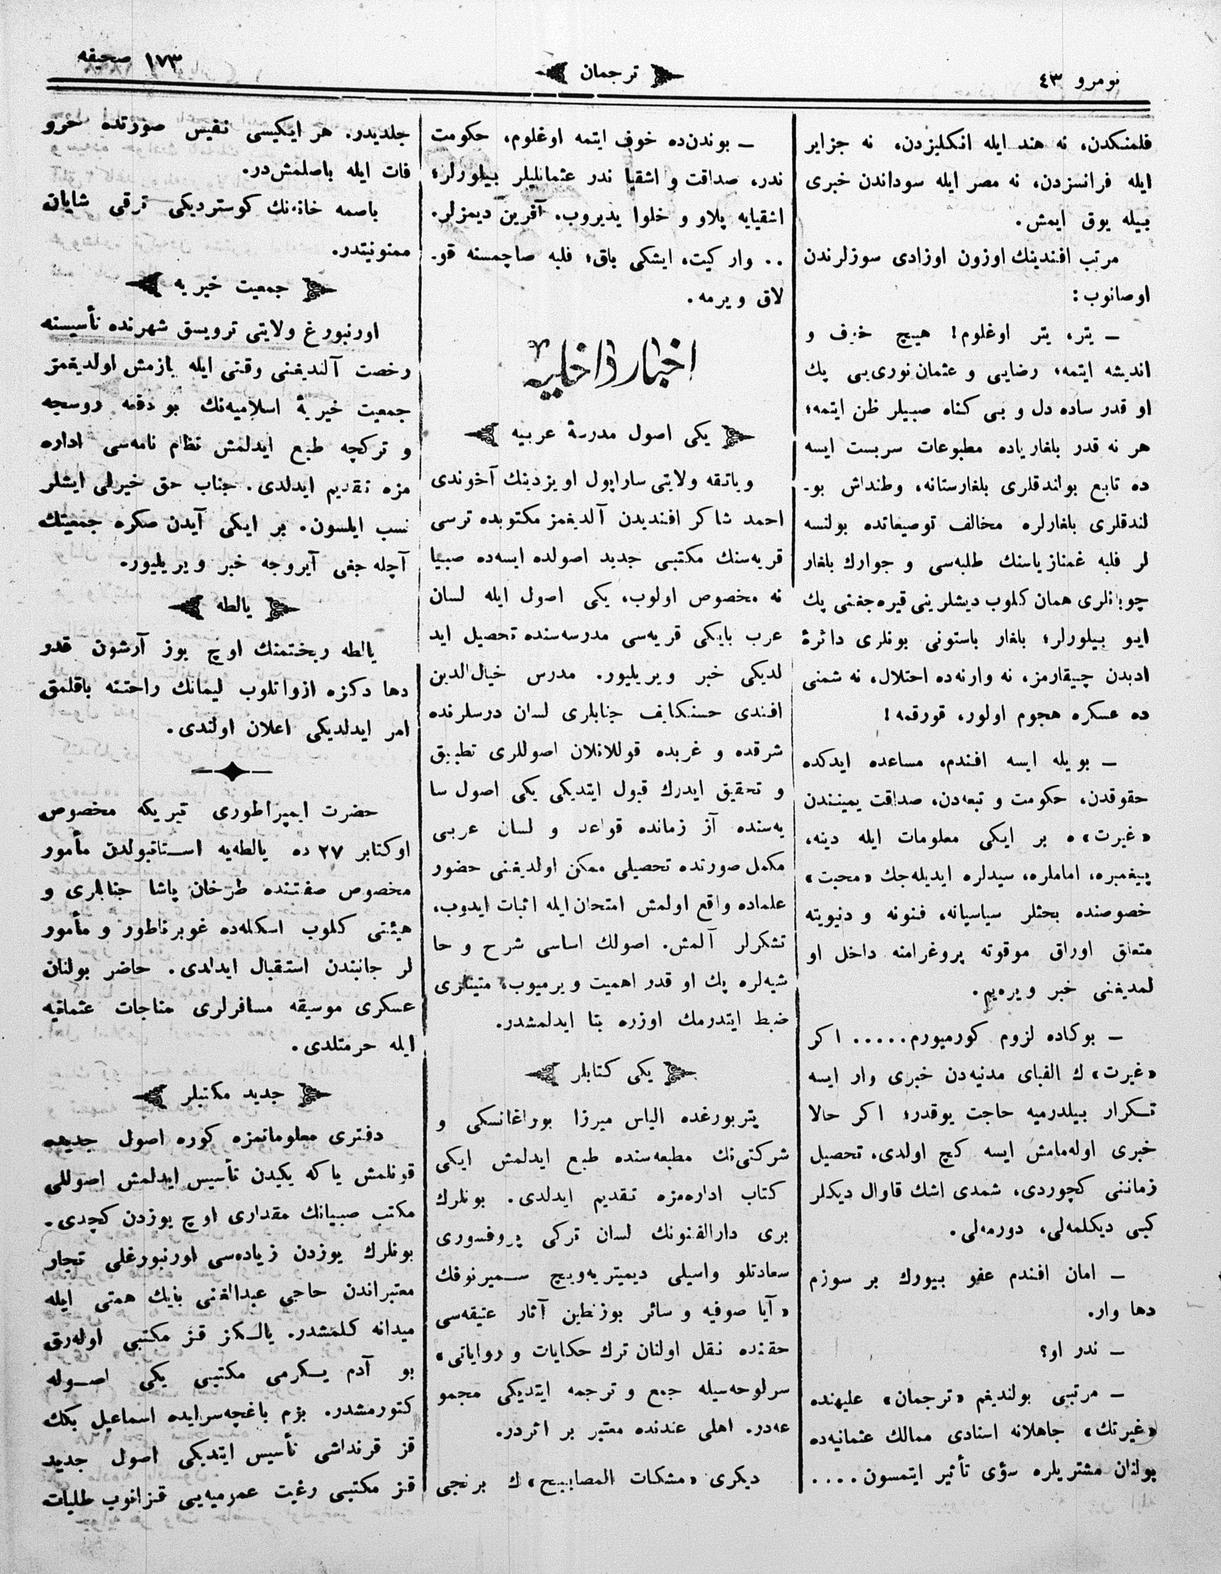 نومرو ٤٣
ترجمان
١٧٣ صحيفه
فلمنكدن، نه هند ايله انكليزدن، نه جزاير
ايله فرانسزدن، نه مصر ايله سوداندن خبرى
بيله يوق ايمش.
مرتب افندينك اوزون اوزادى سوزلرندن
اوصانوب:
ــ يتر، يتر اوغلوم! هيچ خوف و
انديشه ايتمه؛ رضايى و عثمان نورى‌يى پك
او قدر ساده دل و بى كناه صبيلر ظن ايتمه؛
هر نه قدر بلغارياده مطبوعات سربست ايسه
ده تابع بولندقلرى بلغارستانه، وطنداش بو-
لندقلرى بلغارلره مخالف توصيعاتده بولنسه
لر فلبه غمنازياسنك طلبه‌سى و جوارك بلغار
چوبانلرى همان كلوب ديشلرينى قيره‌جغنى پك
ايو بيلورلر؛ بلغار باستونى بونلرى دائرۀ
ادبدن چيقارمز، نه وارنه‌ده احتلال، نه شمنى
ده عسكره هجوم اولور، قورقمه!
ــ بويله ايسه افندم، مساعده ايدكده
حقوقدن، حكومت و تبعه‌دن، صداقت يمينندن
«غيرت»ه بر ايكى معلومات ايله دينه،
پيغمبره، اماملره، سيدلره ايديله‌جك «محبت»
خصوصنده بحثلر سياسيانه، فنونه و دنيويته
متعلق اوراق موقوته پروغرامنه داخل او
لمديغنى خبر ويره‌يم.
ــ بوكاده لزوم كورميورم..... اكر
«غيرت»ك الفباى مدنيه‌دن خبرى وار ايسه
تكرار بيلدرميه حاجت يوقدر؛ اكر حالا
خبرى اوله‌مامش ايسه كيچ اولدى، تحصيل
زماننى كچوردى، شمدى اشك قاوال ديكلر
كبى ديكلمه‌لى، دورمه‌لى.
ــ امان افندم عفو بيورك بر سوزم
دها وار.
ــ ندر او؟
ــ مرتبى بولنديغم «ترجمان» عليهنده
«غيرتك» جاهلانه اسنادى ممالك عثمانيه‌ده
بولنان مشتريلره سؤى تأثير ايتمسون....
ــ بوندن‌ده خوف ايتمه اوغلوم، حكومت
ندر، صداقت و اشقيا ندر عثمانليلر بيلورلر؛
اشقيايه پلاو و خلوا يديروب، آفرين ديمزلر.
.. وار كيت، ايشكى باق؛ فلبه صاچمسنه قو-
لاق ويرمه.
اخبار داخليه
يكى اصول مدرسۀ عربيه
وياتقه ولايتى ساراپول اويزدينك آخوندى
احمد شاكر افنديدن آلديغمز مكتوبده ترسى
قريه‌سنك مكتبى جديد اصولده ايسه‌ده صبيا
نه مخصوص اولوب، يكى اصول ايله لسان
عرب بايكى قريه‌سى مدرسه‌سنده تحصيل ايد
لديكى خبر ويريليور. مدرس خيال‌الدين
افندى حسنكايف جنابلرى لسان درسلرنده
شرقده و غربده قوللانلان اصوللرى تطبيق
و تحقيق ايدرك قبول ايتديكى يكى اصول سا
يه‌سنده آز زمانده قواعد و لسان عربى
مكمل صورتده تحصيلى ممكن اولديغنى حضور
علماده واقع اولمش امتحان ايله اثبات ايدوب،
تشكرلر آلمش. اصولك اساسى شرح و حا
شيه‌لره پك او قدر اهميت ويرميوب، متينلرى
ضبط ايتدرمك اوزره بنا ايدلمشدر.
يكى كتابلر
پتربورغده الياس ميرزا بوراغانسكى و
شركتى‌نك مطبعه‌سنده طبع ايدلمش ايكى
كتاب اداره‌مزه تقديم ايدلدى. بونلرك
برى دارالفنونك لسان تركى پروفسورى
سعادتلو واسيلى ديميتريه‌ويچ سميرنوفك
«آيا صوفيه و سائر بوزنطين آثار عتيقه‌سى
حقنده نقل اولنان ترك حكايات و رواياتى»
سرلوحه‌سيله جمع و ترجمه ايتديكى مجمو
عه‌در. اهلى عندنده معتبر بر اثردر.
ديكرى «مشكات المصابيح»ك برنجى
جلديدر. هر ايكيسى نفيس صورتده حرو
فات ايله باصلمش‌در.
باصمه خانه‌نك كوسترديكى ترقى شايان
ممنونيتدر.
جمعيت خيريه
اورنبورغ ولايتى ترويسق شهرنده تأسيسنه
رخصت آلنديغنى وقتى ايله يازمش اولديغمز
جمعيت خيريۀ اسلاميه‌نك بو دفعه روسجه
و تركچه طبع ايدلمش نظام نامه‌سى اداره
مزه تقديم ايدلدى. جناب حق خيرلى ايشلر
نسب ايلسون. بر ايكى آيدن صكره جمعيتك
آچله جغى آيروجه خبر ويريليور.
يالطه
يالطه ريختمنك اوچ يوز آرشون قدر
دها دكزه ازواتلوب ليمانك راحتنه باقلمق
امر ايدلديكى اعلان اولندى.
حضرت ايمپراطورى تبريكه مخصوص
اوكتابر ٢٧ ده يالطه‌يه استانبولدن مأمور
مخصوص صفتنده طرخان پاشا جنابلرى و
هيئتى كلوب اسكله‌ده غوبرناطور و مأمور
لر جانبندن استقبال ايدلدى. حاضر بولنان
عسكرى موسيقه مسافرلرى مناجات عثمانيه
ايله حرمتلدى.
جديد مكتبلر
دفترى معلوماتمزه كوره اصول جديده
قونلمش ياكه يكيدن تأسيس ايدلمش اصوللى
مكتب صبيانك مقدارى اوچ يوزدن كچدى.
بونلرك يوزدن زياده‌سى اورنبورغلى تجار
معتبراندن حاجى عبدالغنى بايك همتى ايله
ميدانه كلمشدر. يالكز قز مكتبى اوله‌رق
بو آدم يكرمى مكتبى يكى اصوله
كتورمشدر. بزم باغچه‌سرايده اسماعيل بكك
قز قرنداشى تأسيس ايتديكى اصول جديد
قز مكتبى رغبت عموميه‌يى قزانوب طلبات